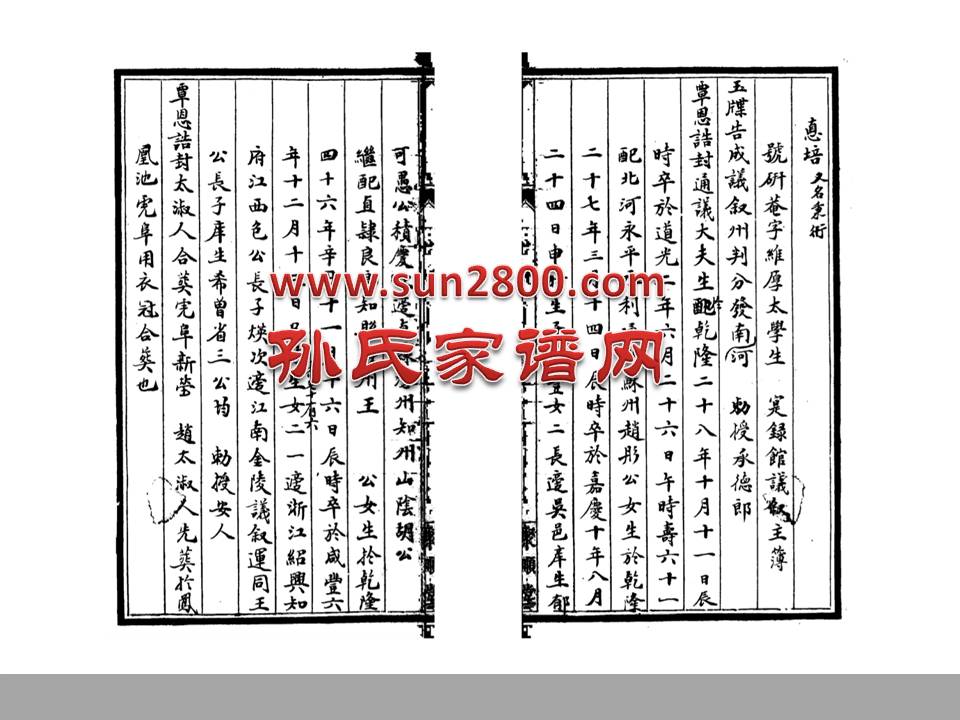 惪培 又名秉衍
號研菴字維厚太學生 寔録館議敘主簿
玉牒告成議叙州判分發南河 勅授承德郎
覃恩誥封通議大夫生於乾隆二十八年十月十一日辰
時卒於道光二年六月二十六日午時壽六十一
配北河永平 利 蘇州趙彤公女生於乾隆
二十七年三月十四日辰時卒於嘉慶十年八月
二十四日申 生子 女二長適吳邑庠生郁
可愚公積慶 適 州知州山陰胡公
繼配直隸良 知縣 州王 公女生扵乾隆
四十六年辛 十一月 十六日辰時卒於咸豐六
年十二月十 日 生女二一適浙江紹興知
府江西色公長子煐次適江南金陵議叙運同王
公長子庠生希曾省三公均 勅授安人
覃恩誥封太淑人合葬寔阜新塋 趙太淑人先葬扵鳳
凰池寔阜用衣冠合葬也
www.sun2800.com
孙氏家谱网